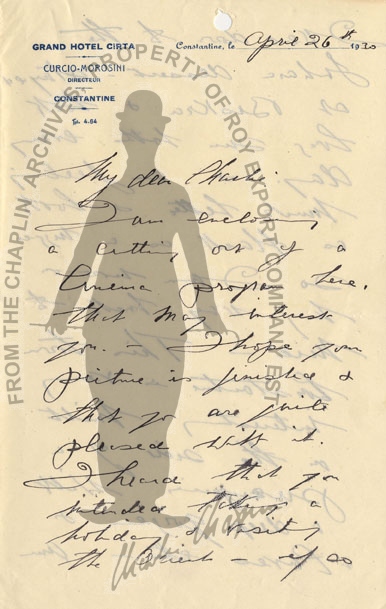 GRAND HOTEL CIRTA
CURCIO-MOROSINI
DIRECTEUR
CONSTANTINE
Tél. 4.64
Constantine, le April 26th 1930
My dear Charlie
I am enclosing
a cutting out of a
Cinema program here,
that may interest
you. - I hope your
picture is finished &
that you are quite
pleased with it.
I heard that you
intended taking a
holiday & visiting
the Orient - if so
FROM THE CHAPLIN ARCHIVES. PROPERTY OF ROY EXPORT COMPANY EST.
Charlie Chaplin